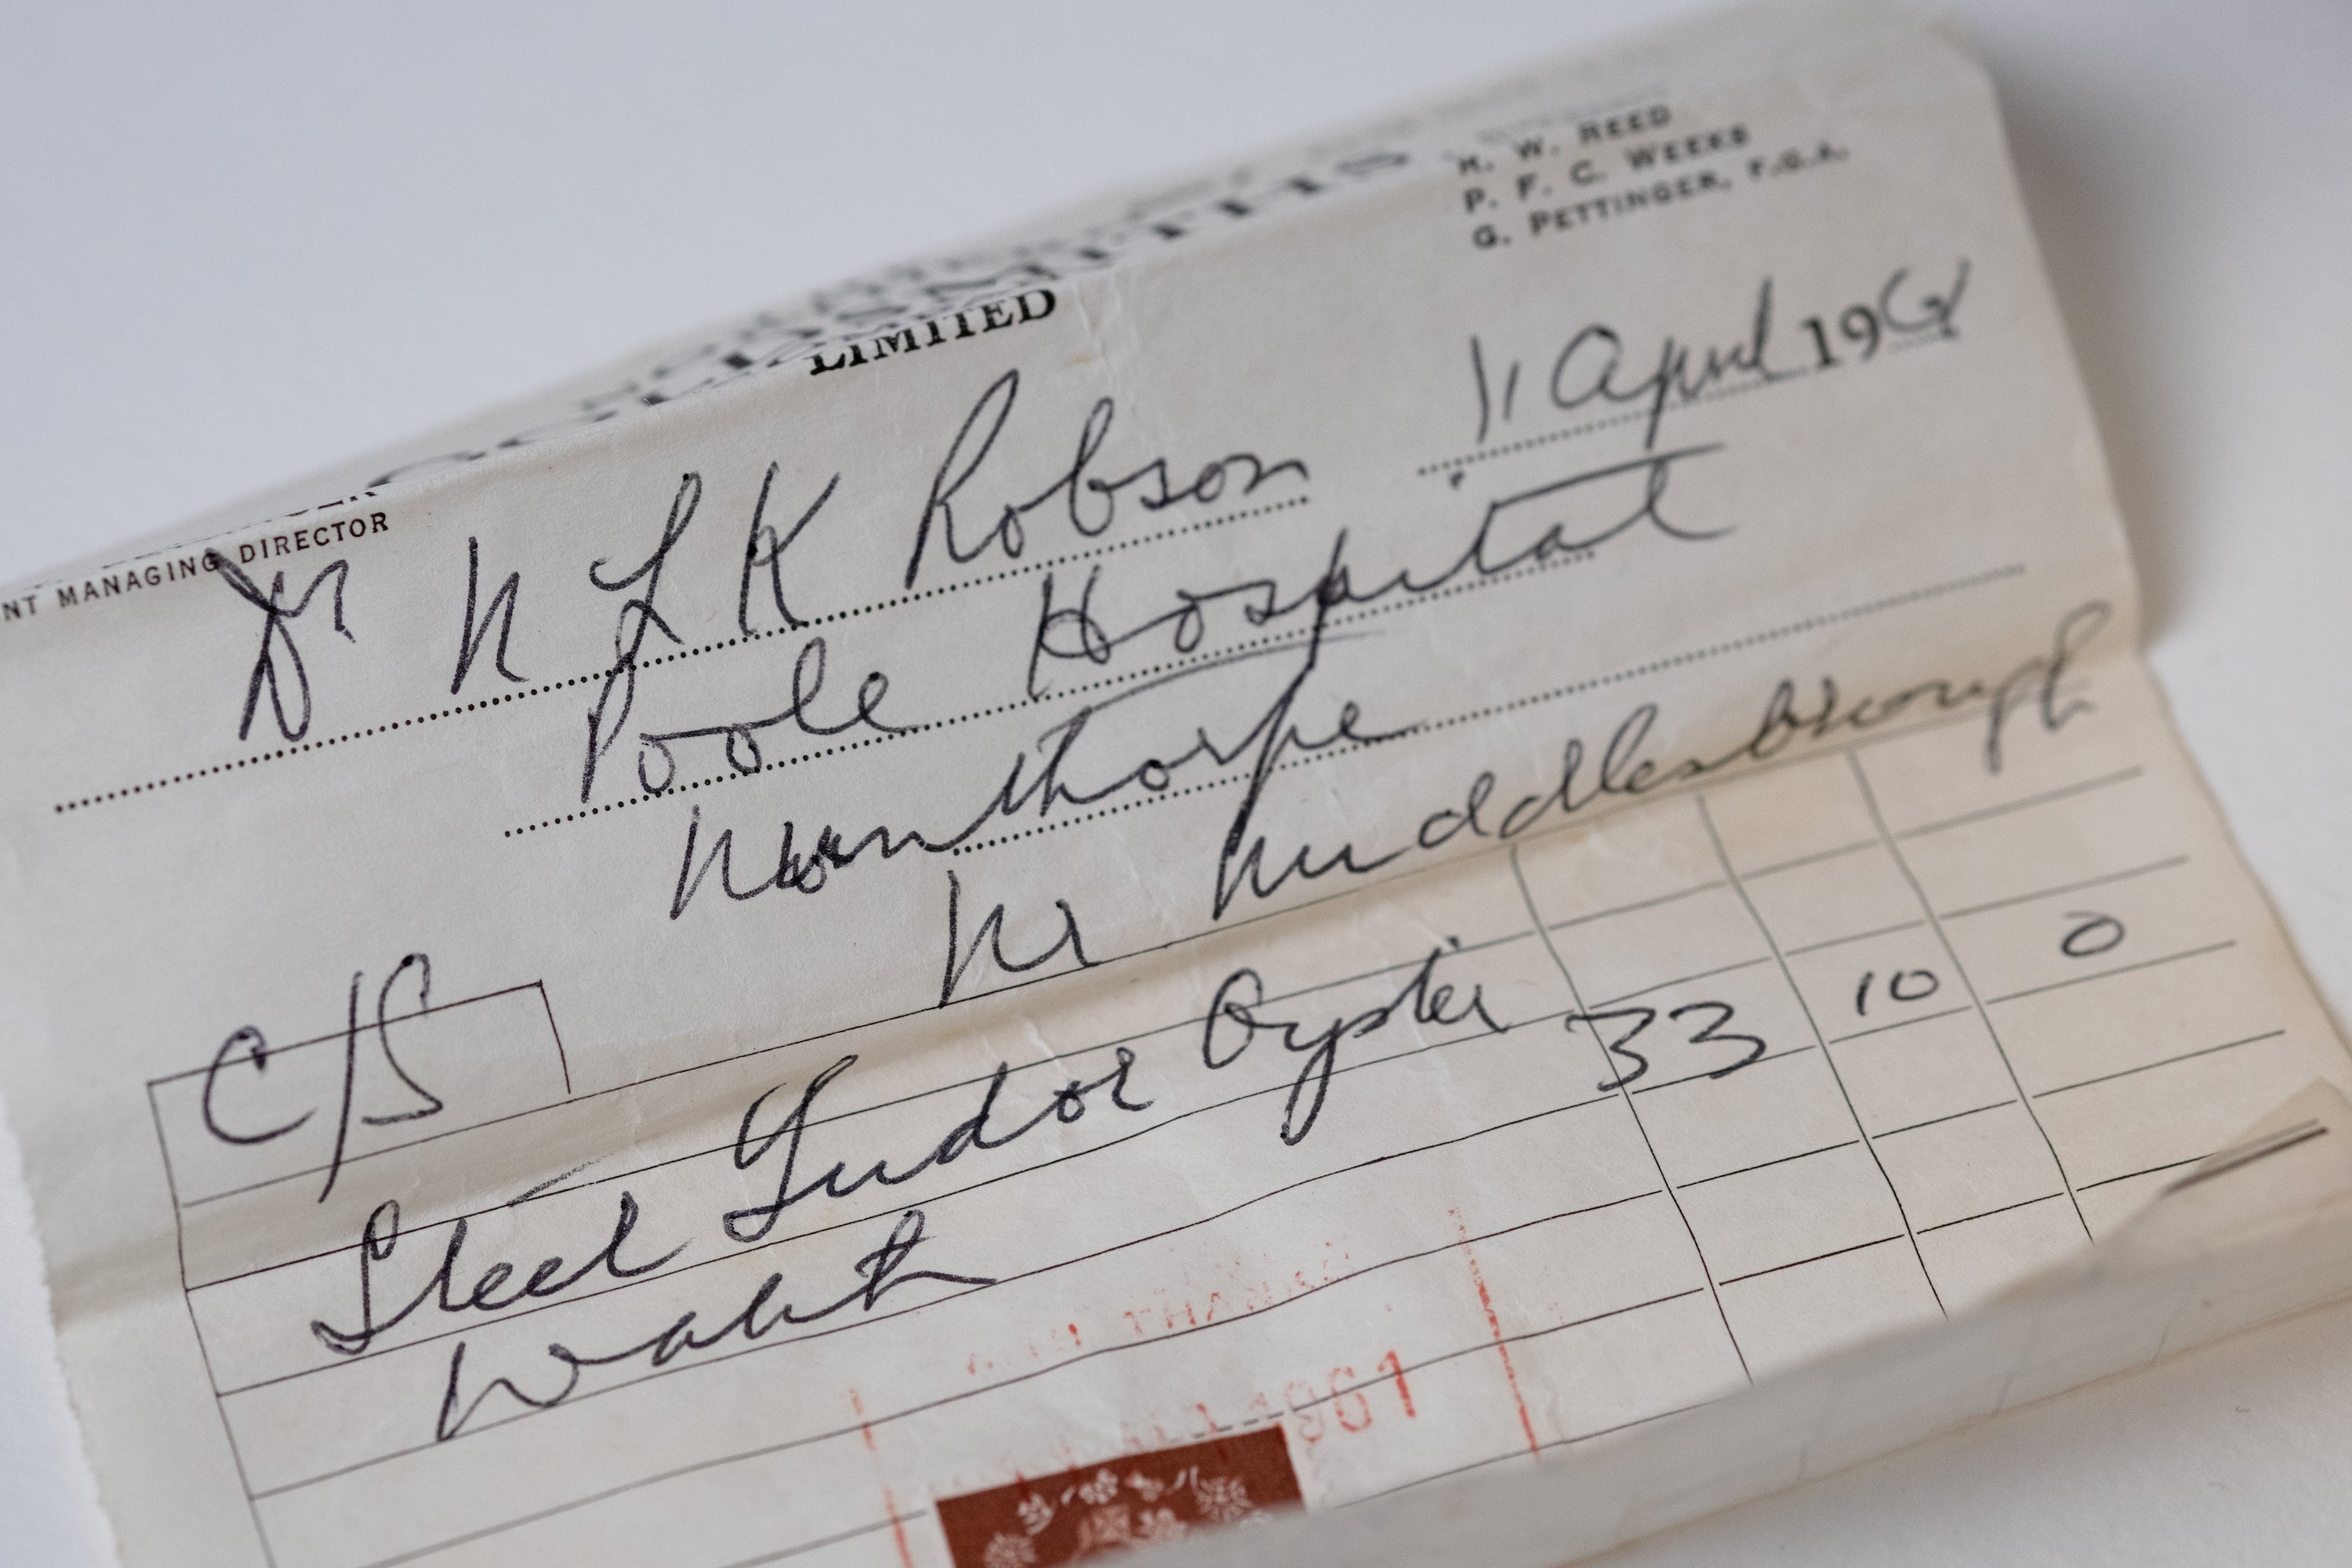 R. W. REED
P. F. C. WEEKS
G. PETTINGER, F.G.A.
GOLDSMITHS
LIMITED
NT MANAGING DIRECTOR
11 April 1961
Dr N L K Robson
Poole Hospital
Nunthorpe
Nr Middlesbrough
C/S
Steel Tudor Oyster 33 10 0
Watch
THANKS
1961